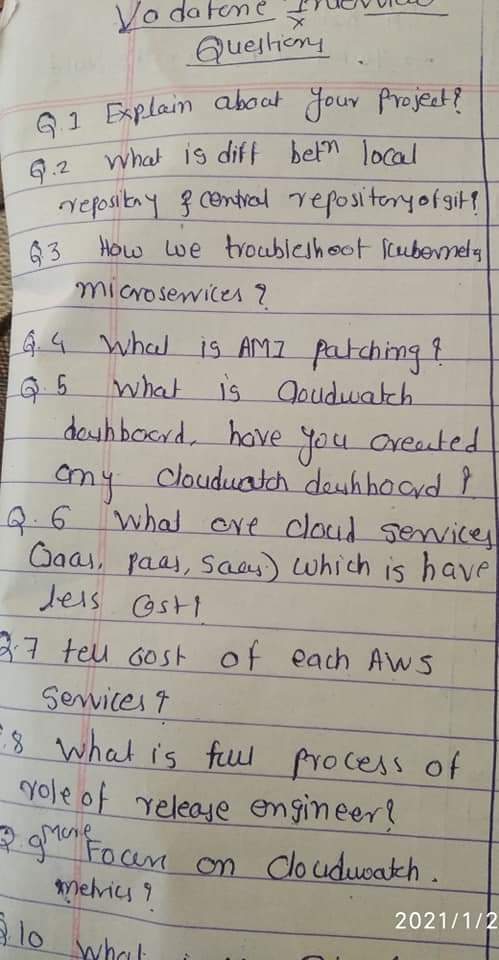 Vodafone Interview
Questions
Q.1 Explain about your project?
Q.2 What is diff betn local
repository & central repository of git?
Q.3 How we troubleshoot kubernets
microservices?
Q.4 What is AMI patching?
Q.5 What is Cloudwatch
dashboard, have you created
any cloudwatch dashboard?
Q.6 What are cloud services
(Iaas, paas, saas) which is have
less cost?
Q.7 tell cost of each AWS
services?
.8 What is full process of
role of release engineer?
Q.9 More Focus on Cloudwatch.
metrics?
Q.10 What
2021/1/2